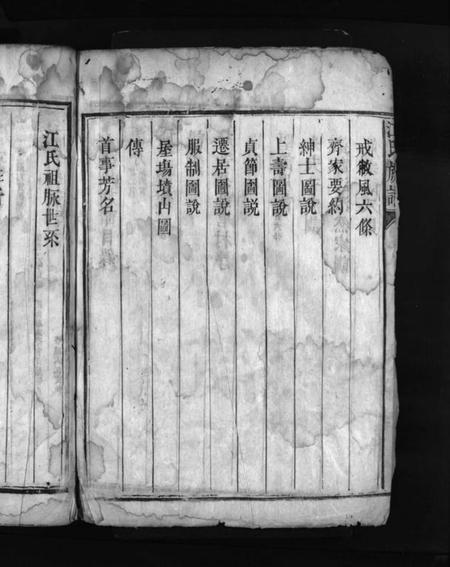 江氏族譜
戒敝風六條
齊家要約
紳士圖說
上壽圖說
貞節圖說
遷居圖說
服制圖說
屋場墳山圖
傳
首事芳名
江氏祖脉世系